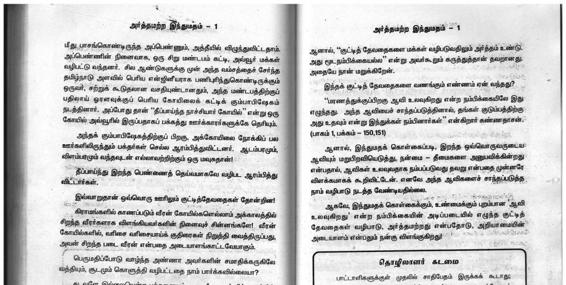 அர்த்தமற்ற இந்துமதம் - 1
மீது பாசங்கொண்டிருந்த அப்பெண்ணும், அத்தீயில் விழுந்துவிட்டதாம்.
அப்பெண்ணின் நினைவாக, ஒரு சிறு மண்டபம் கட்டி, அவ்வூர் மக்கள்
வழிபட்டு வந்தனர். சில ஆண்டுகளுக்கு முன் அந்த வம்சத்தைச் சேர்ந்த
தமிழ்நாடு அளவில் பெரிய என்ஜினீயராக பணிபுரிந்துகொண்டிருக்கும்
ஒருவர், சற்றுக் கூடுதலான வசதியுண்டானதும், அந்த மண்டபத்திற்குப்
பதிலாய் ஓரளவுக்குப் பெரிய கோயிலைக் கட்டிக் கும்பாபிஷேகம்
நடத்தினார். அப்போது தான் "தீப்பாய்ந்த நாச்சியார் கோயில்" என்று ஒரு
கோயில் அவ்வூரில் இருப்பதாகப் பக்கத்து ஊர்க்காரர்களுக்கே தெரியும்.
அந்தக் கும்பாபிஷேகத்திற்குப் பிறகு, அக்கோயிலை நோக்கிப் பல
ஊர்களிலிருந்தும் பக்தர்கள் செல்ல ஆரம்பித்துவிட்டனர். ஆடம்பரமும்,
விளம்பரமும் வந்தவுடன் எல்லாவற்றிற்கும் ஒரு மவுசுதான்!
தீப்பாய்ந்து இறந்த பெண்ணைத் தெய்வமாகவே வழிபட ஆரம்பித்து
விட்டார்கள்.
இவ்வாறுதான் ஒவ்வொரு ஊரிலும் குட்டித்தேவதைகள் தோன்றின!
கிராமங்களில் காணப்படும் வீரன் கோயில்களெல்லாம் அக்காலத்தில்
சிறந்த வீரர்களாக விளங்கியவர்களின் நினைவுச் சின்னங்களே! வீரன்
கோயில்களில், வரிசை வரிசையாய்க் குதிரைகள் நிறுத்தி வைத்திருப்பது,
அவன் சிறந்த படை வீரன் என்பதை அடையாளங்காட்டவேயாகும்.
பெருமதிப்போடு வாழ்ந்த அண்ணா அவர்களின் சமாதிக்கருகிலே
வத்தியும், சூடமும் கொளுத்தி வழிபட்டதை நாம் பார்க்கவில்லையா?
அர்த்தமற்ற இந்துமதம் - 1
ஆனால், "குட்டித் தேவதைகளை மக்கள் வழிபடுவதிலும் அர்த்தம் உண்டு.
அது மூடநம்பிக்கையல்ல" என்று அவர்கூறும் கருத்துத்தான் தவறானது.
அதையே நான் மறுக்கிறேன்.
இந்தக் குட்டித் தேவதைகளை வணங்கும் எண்ணம் ஏன் வந்தது?
"மரணத்துக்குப்பிறகு ஆவி உலவுகிறது என்ற நம்பிக்கையிலே இது
எழுந்தது. அந்த ஆவியைச் சாந்தப்படுத்தினால், தங்கள் குடும்பத்திற்கு
அது உதவும் என்று இந்துக்கள் நம்பினார்கள்" என்கிறார் கண்ணதாசன்.
(பாகம் 1, பக்கம் - 150,151)
ஆனால், இந்துமதக் கொள்கைப்படி, இறந்த ஒவ்வொருவருடைய
ஆவியும் மறுபிறவியெடுத்து, நன்மை - தீமைகளை அனுபவிக்கின்றது
என்பதால், ஆவிகள் உலவுவதாக நம்பப்படுவது தவறு என்பதை முன்னரே
விளக்கமாகக் கூறிவிட்டேன். எனவே அந்த ஆவிகளைச் சாந்தப்படுத்த
நாம் வழிபாடு நடத்த வேண்டியதில்லை.
ஆகவே, இந்துமதக் கொள்கைக்கும், உண்மைக்கும் புறம்பான 'ஆவி
உலவுகிறது' என்ற நம்பிக்கையின் அடிப்படையில் எழுந்த குட்டித்
தேவதைகள் வழிபாடு, அர்த்தமற்றது என்பதோடு, அறியாமையின்
அடையாளம் என்பதும் நன்கு விளங்குகிறது!
தொழிலாளர் கடமை
பாட்டாளிகளுக்குள் முதலில் சாதிபேதம் இருக்கக் கூடாது;